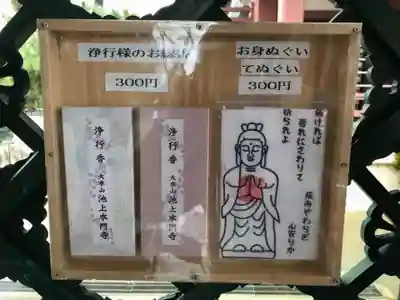 浄行様のお線香
300円
お身ぬぐい
てぬぐい
300円
浄行香 大本山 池上本門寺
浄行香 大本山 池上本門寺
痛ければ
吾れにさわりて
祈られよ